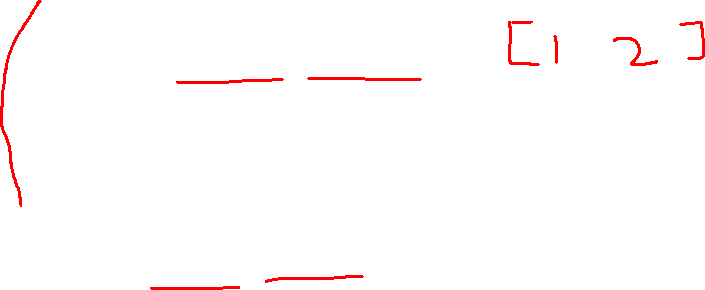 ( __ __ [1 2]
__ __